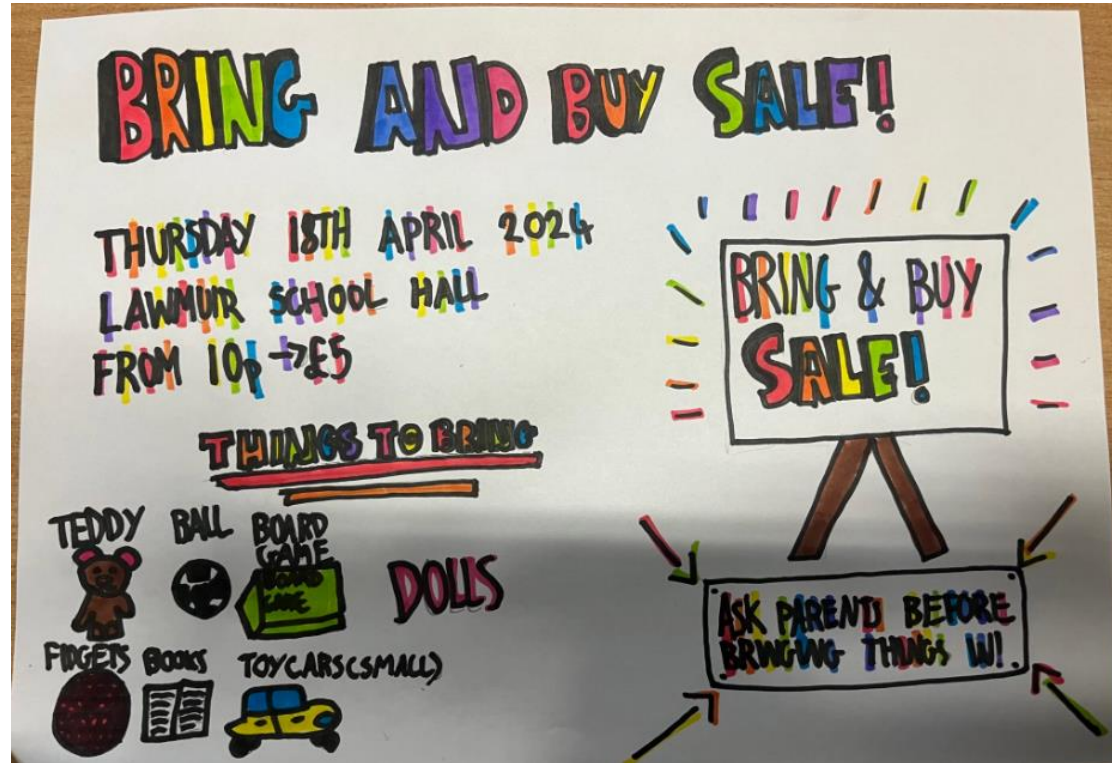 BRING AND BUY SALE!
THURSDAY 18TH APRIL 2024
LAWMUIR SCHOOL HALL
FROM 10p → £5
BRING & BUY
SALE!
THINGS TO BRING
TEDDY
BALL
BOARD
GAME
BOARD
GAME
DOLLS
FIDGETS
BOOKS
TOY CARS (SMALL)
ASK PARENTS BEFORE
BRINGING THINGS IN!